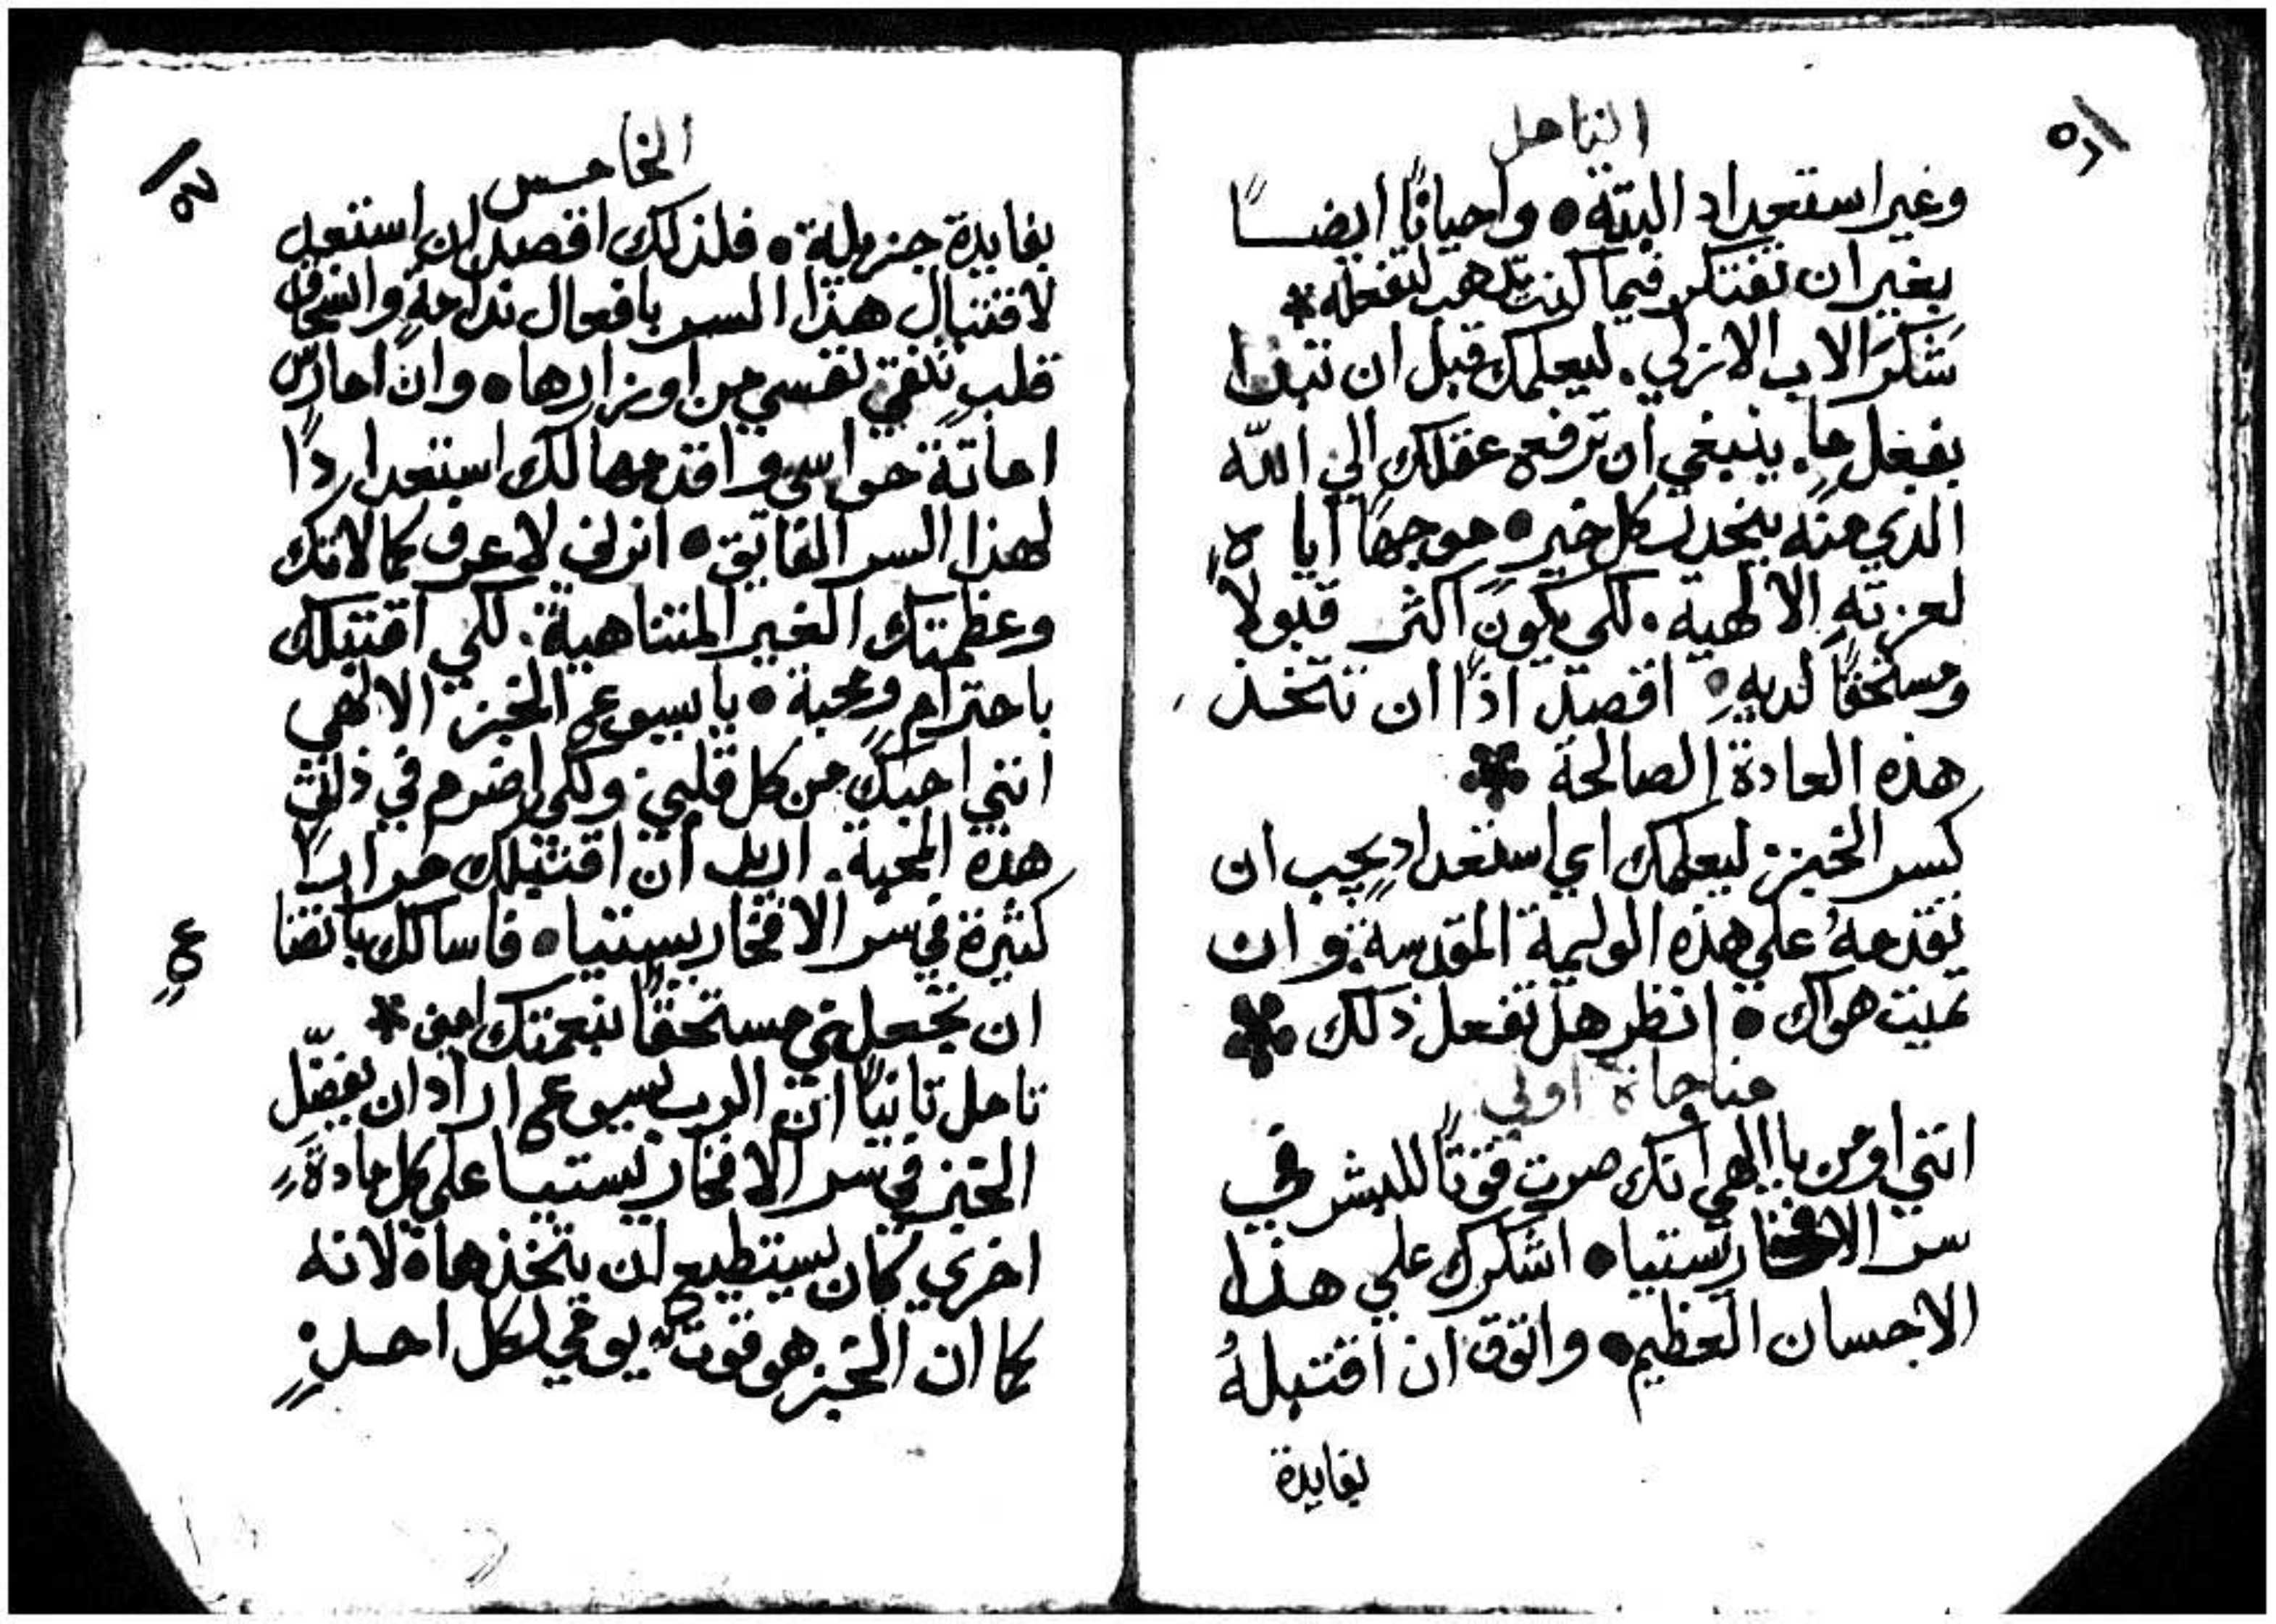 التامل
وغير استعداد البتة • واحيانًا ايضًا
بغير ان تفتكر فيما كنت تذهب لتفعله *
شكرَ الاب الازلي. ليعلمك قبل ان تبدا
بفعلٍ ما. ينبغي ان ترفع عقلك الي اللّه
الذي منه ينحدر كل خير • موجهًا اياه
لعزته الالهية. لكي يكون اكثر قبولاً
ومستحقًا لديهِ • اقصد اذًا ان تتخذ
هذه العادة الصالحة *
كسر الخبز. ليعلمك اي استعدادٍ يجب ان
تقدمهُ علي هذه الوليمة المقدسة. وان
تميت هواك • انظر هل تفعل ذلك *
مناجاة اولي
انني اومن يا الهي انك صرت قوتًا للبشر في
سر الافخارستيا • اشكرك علي هذا
الاحسان العظيم • واتوق ان اقتبلهُ
بفايدة
الخامس
بفايدة جزيلة • فلذلك اقصد ان استعد
لاقتبال هذا السر بافعال ندامةٍ وانسحاق
قلبٍ تنقي نفسي من اوزارها • وان امارس
اماتة حواسي واقدمها لك استعدادًا
لهذا السر الفايق • انرني لاعرف كمالاتك
وعظمتك الغير المتناهية. لكي اقتبلك
باحترامٍ ومحبة • يا يسوع الخبز الالهي
انني احبك من كل قلبي. ولكي اضرم في ذاتي
هذه المحبة. اريد ان اقتبلك مرارًا
كثيرة في سر الافخاريستيا • فاسالك باتضاع
ان تجعلني مستحقًا لنعمتك امين *
تامل ثانيًا ان الرب يسوع اراد ان يفضّل
الخبز في سر الافخاريستيا علي كل مادةٍ
اخري كان يستطيع ان يتخذها • لانه
كما ان الخبز هو قوت يومي لكل احدٍ